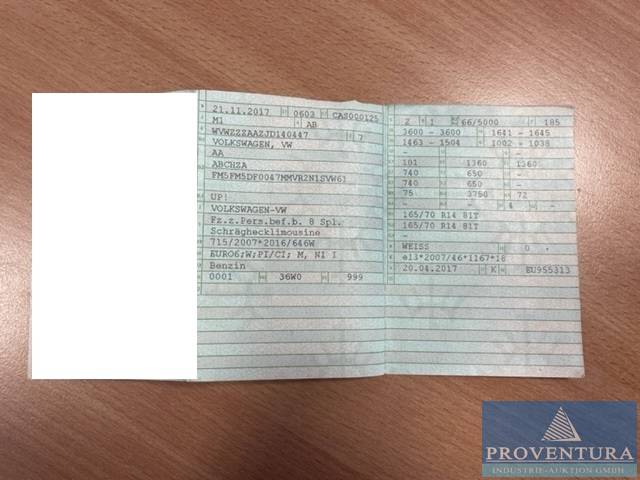 21.11.2017 0603 CAS000125
M1 AB
WVWZZZAAZJD140447 7
VOLKSWAGEN, VW
AA
ABCHZA
FM5FM5DF0047MMVR2N1SVW61
UP!
VOLKSWAGEN-VW
Fz.z.Pers.bef.b. 8 Spl.
Schräghecklimousine
715/2007*2016/646W
EURO6;W;PI/CI; M, N1 I
Benzin
0001 36W0 999
2 1 66/5000 185
3600 - 3600 1641 - 1645
1463 - 1504 1002 - 1038
- -
101 1360 1360
740 650 -
740 650 -
75 3750 72
- 4 -
165/70 R14 81T
165/70 R14 81T
-
WEISS 0
e13*2007/46*1167*18
20.04.2017 K EU955313
PROVENTURA
INDUSTRIE-AUKTION GMBH